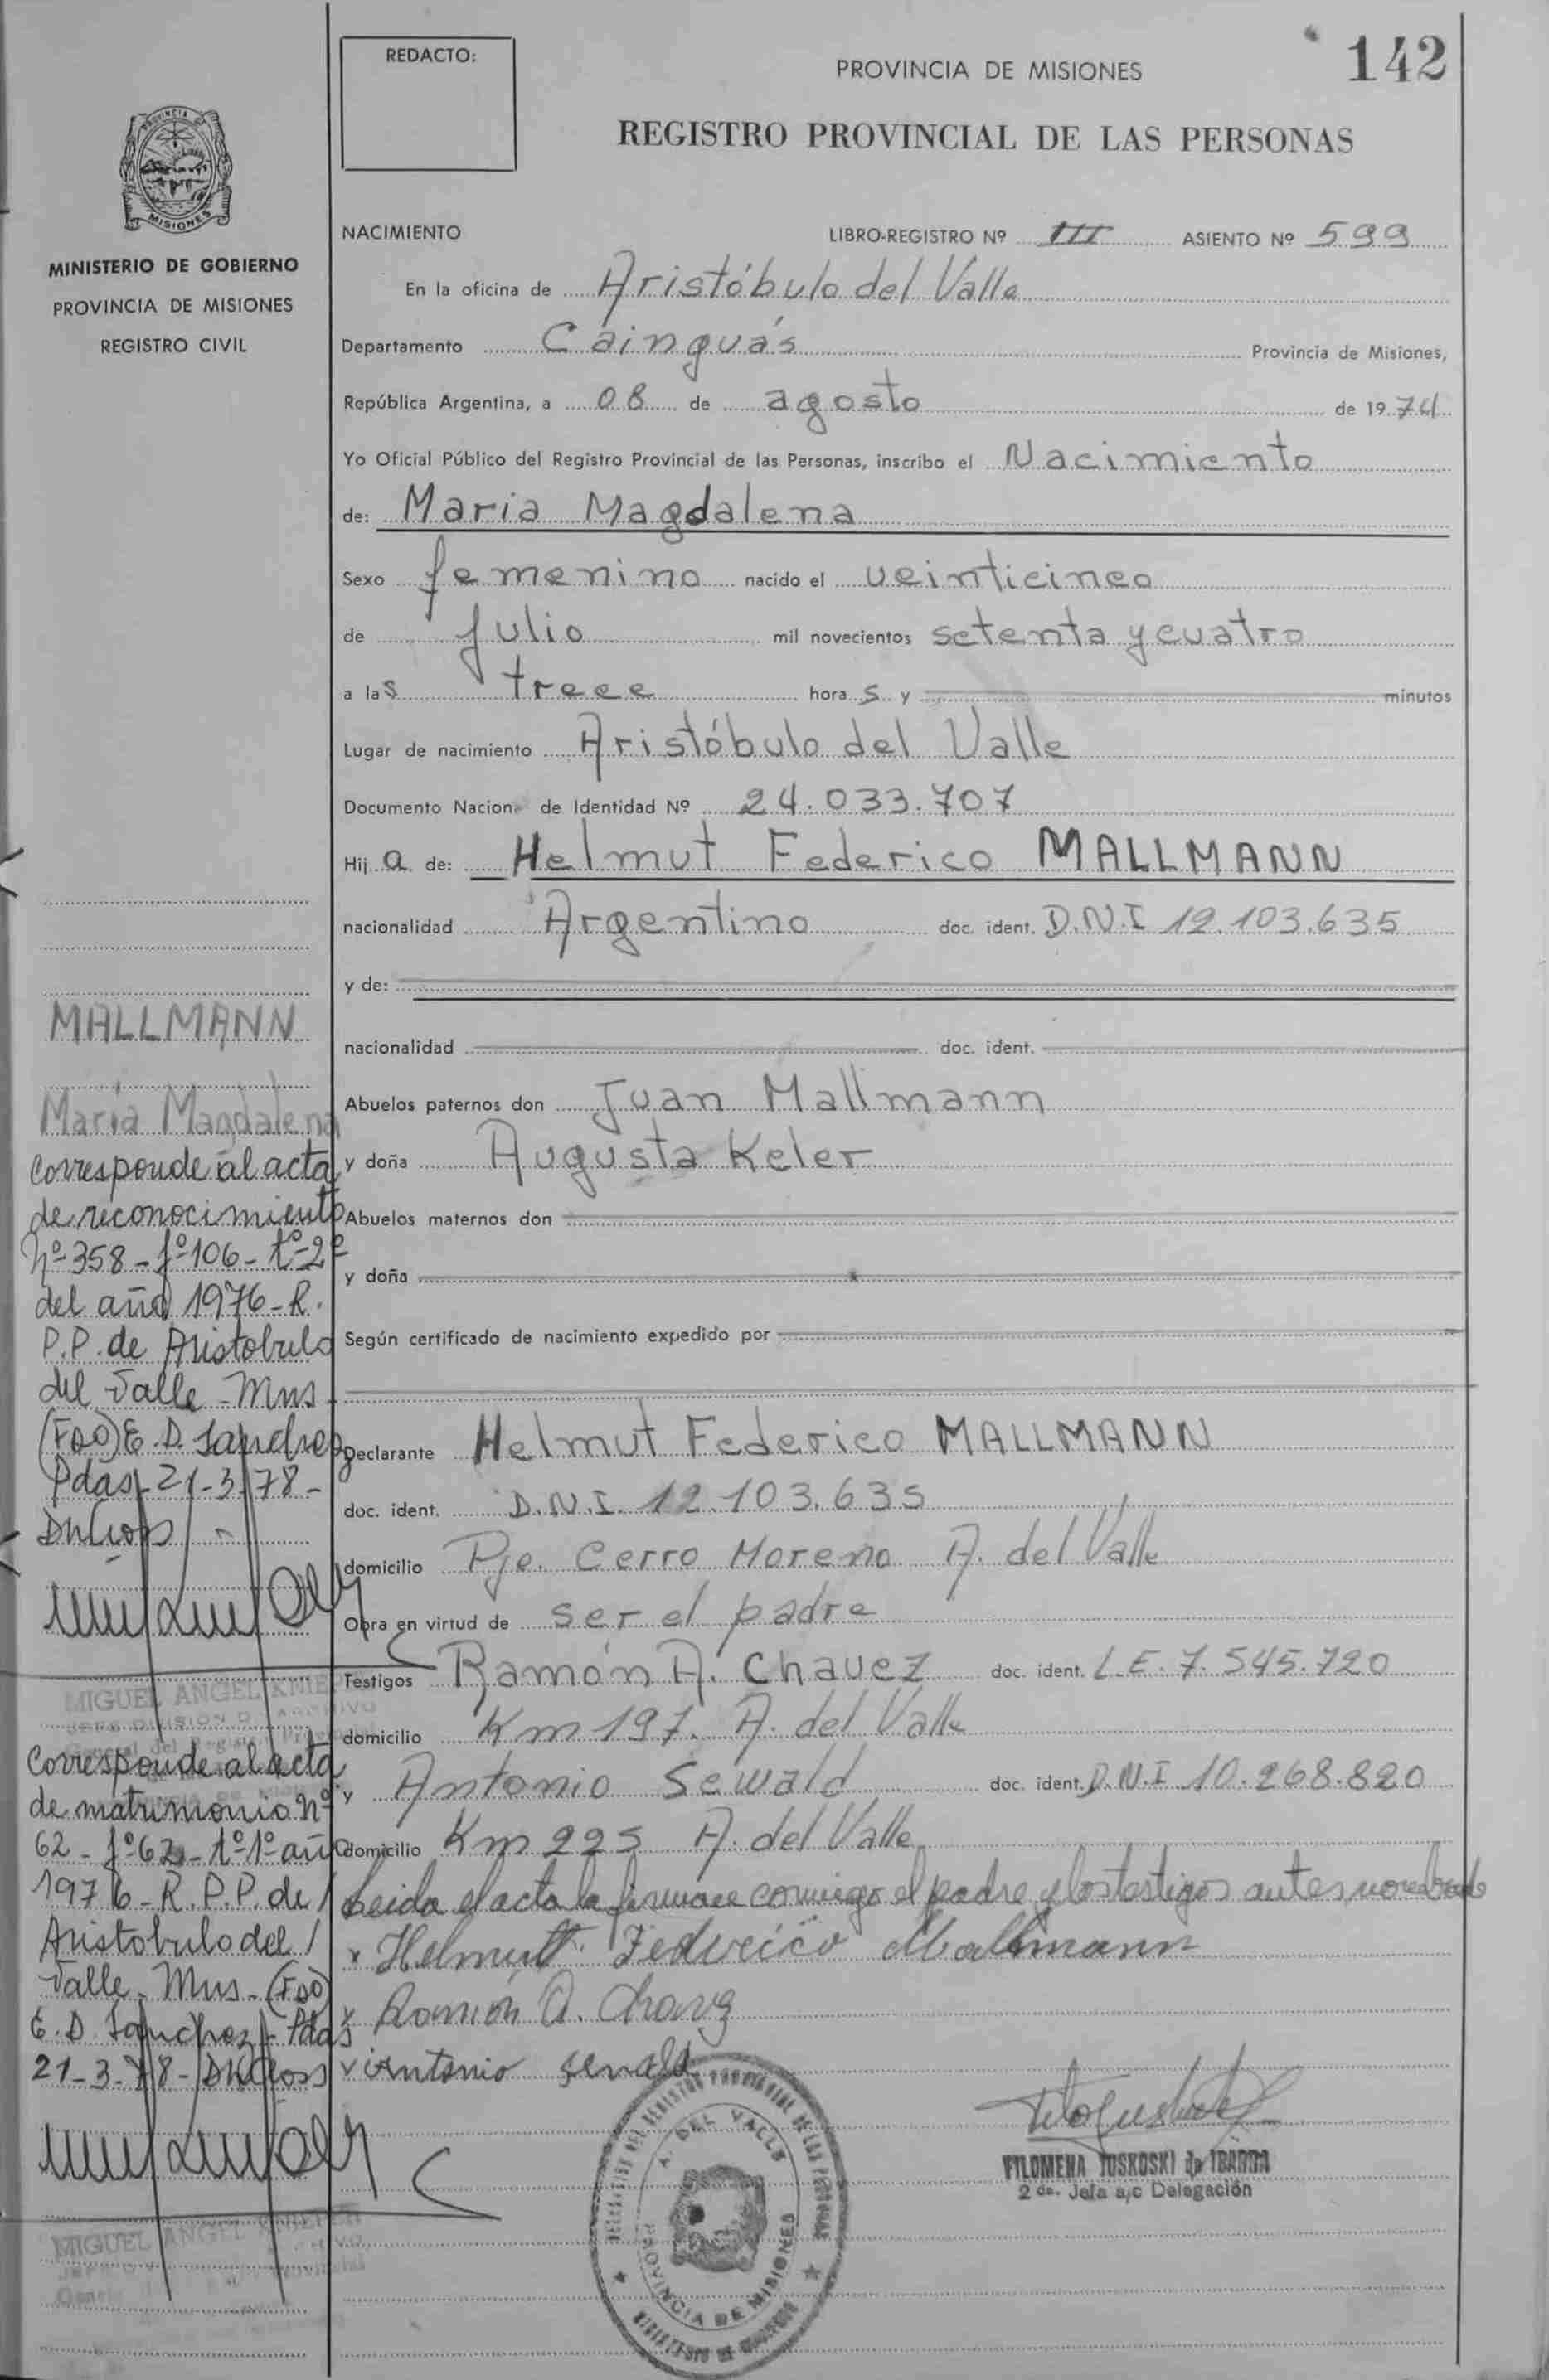 REDACTO:
PROVINCIA DE MISIONES
142
REGISTRO PROVINCIAL DE LAS PERSONAS
PROVINCIA DE
MISIONES
MINISTERIO DE GOBIERNO
PROVINCIA DE MISIONES
REGISTRO CIVIL
NACIMIENTO LIBRO-REGISTRO Nº III ASIENTO Nº 599
En la oficina de Aristóbulo del Valle
Departamento Cainguás Provincia de Misiones,
República Argentina, a 08 de agosto de 1974
Yo Oficial Público del Registro Provincial de las Personas, inscribo el Nacimiento
de: Maria Magdalena
Sexo femenino nacido el veinticinco
de Julio mil novecientos setenta y cuatro
a las trece hora s y minutos
Lugar de nacimiento Aristóbulo del Valle
Documento Nacion. de Identidad Nº 24.033.707
Hij a de: Helmut Federico MALLMANN
nacionalidad Argentino doc. ident. D.N.I 12.103.635
y de:
nacionalidad doc. ident.
Abuelos paternos don Juan Mallmann
y doña Augusta Keler
Abuelos maternos don
y doña
Según certificado de nacimiento expedido por
Declarante Helmut Federico MALLMANN
doc. ident. D.N.I. 12.103.635
domicilio Pje. Cerro Moreno A. del Valle
Obra en virtud de ser el padre
Testigos Ramón A. Chavez doc. ident. L.E. 7.545.720
domicilio Km 197. A. del Valle
y Antonio Sewald doc. ident. D.N.I 10.268.820
domicilio Km 225 A. del Valle
Leida el acta la firman conmigo el padre y los testigos antes nombrado
x Helmutt Federico Mallmann
x Ramón A. Chavez
x Antonio Sewald
FILOMENA TUSKOSKI de IBARRA
2 da. Jefa a/c Delegación
A. DEL VALLE
PROVINCIA DE MISIONES
MINISTERIO DE GOBIERNO
MALLMANN
Maria Magdalena
Corresponde al acta
de reconocimiento
Nº 358 - fº 106 - tº - 2º
del año 1976 - R.
P.P. de Aristobulo
del Valle - Mns
(FDO) E. D. Sanchez
Pdas - 21-3-78 -
MIGUEL ANGEL KNIE
Corresponde al acta
de matrimonio nº
62 - fº 62 - tº 1º año
1976 - R.P.P. de /
Aristobulo del /
Valle - Mns - (FDO)
E. D. Sanchez - Pdas
21-3-78 -
MIGUEL ANGEL